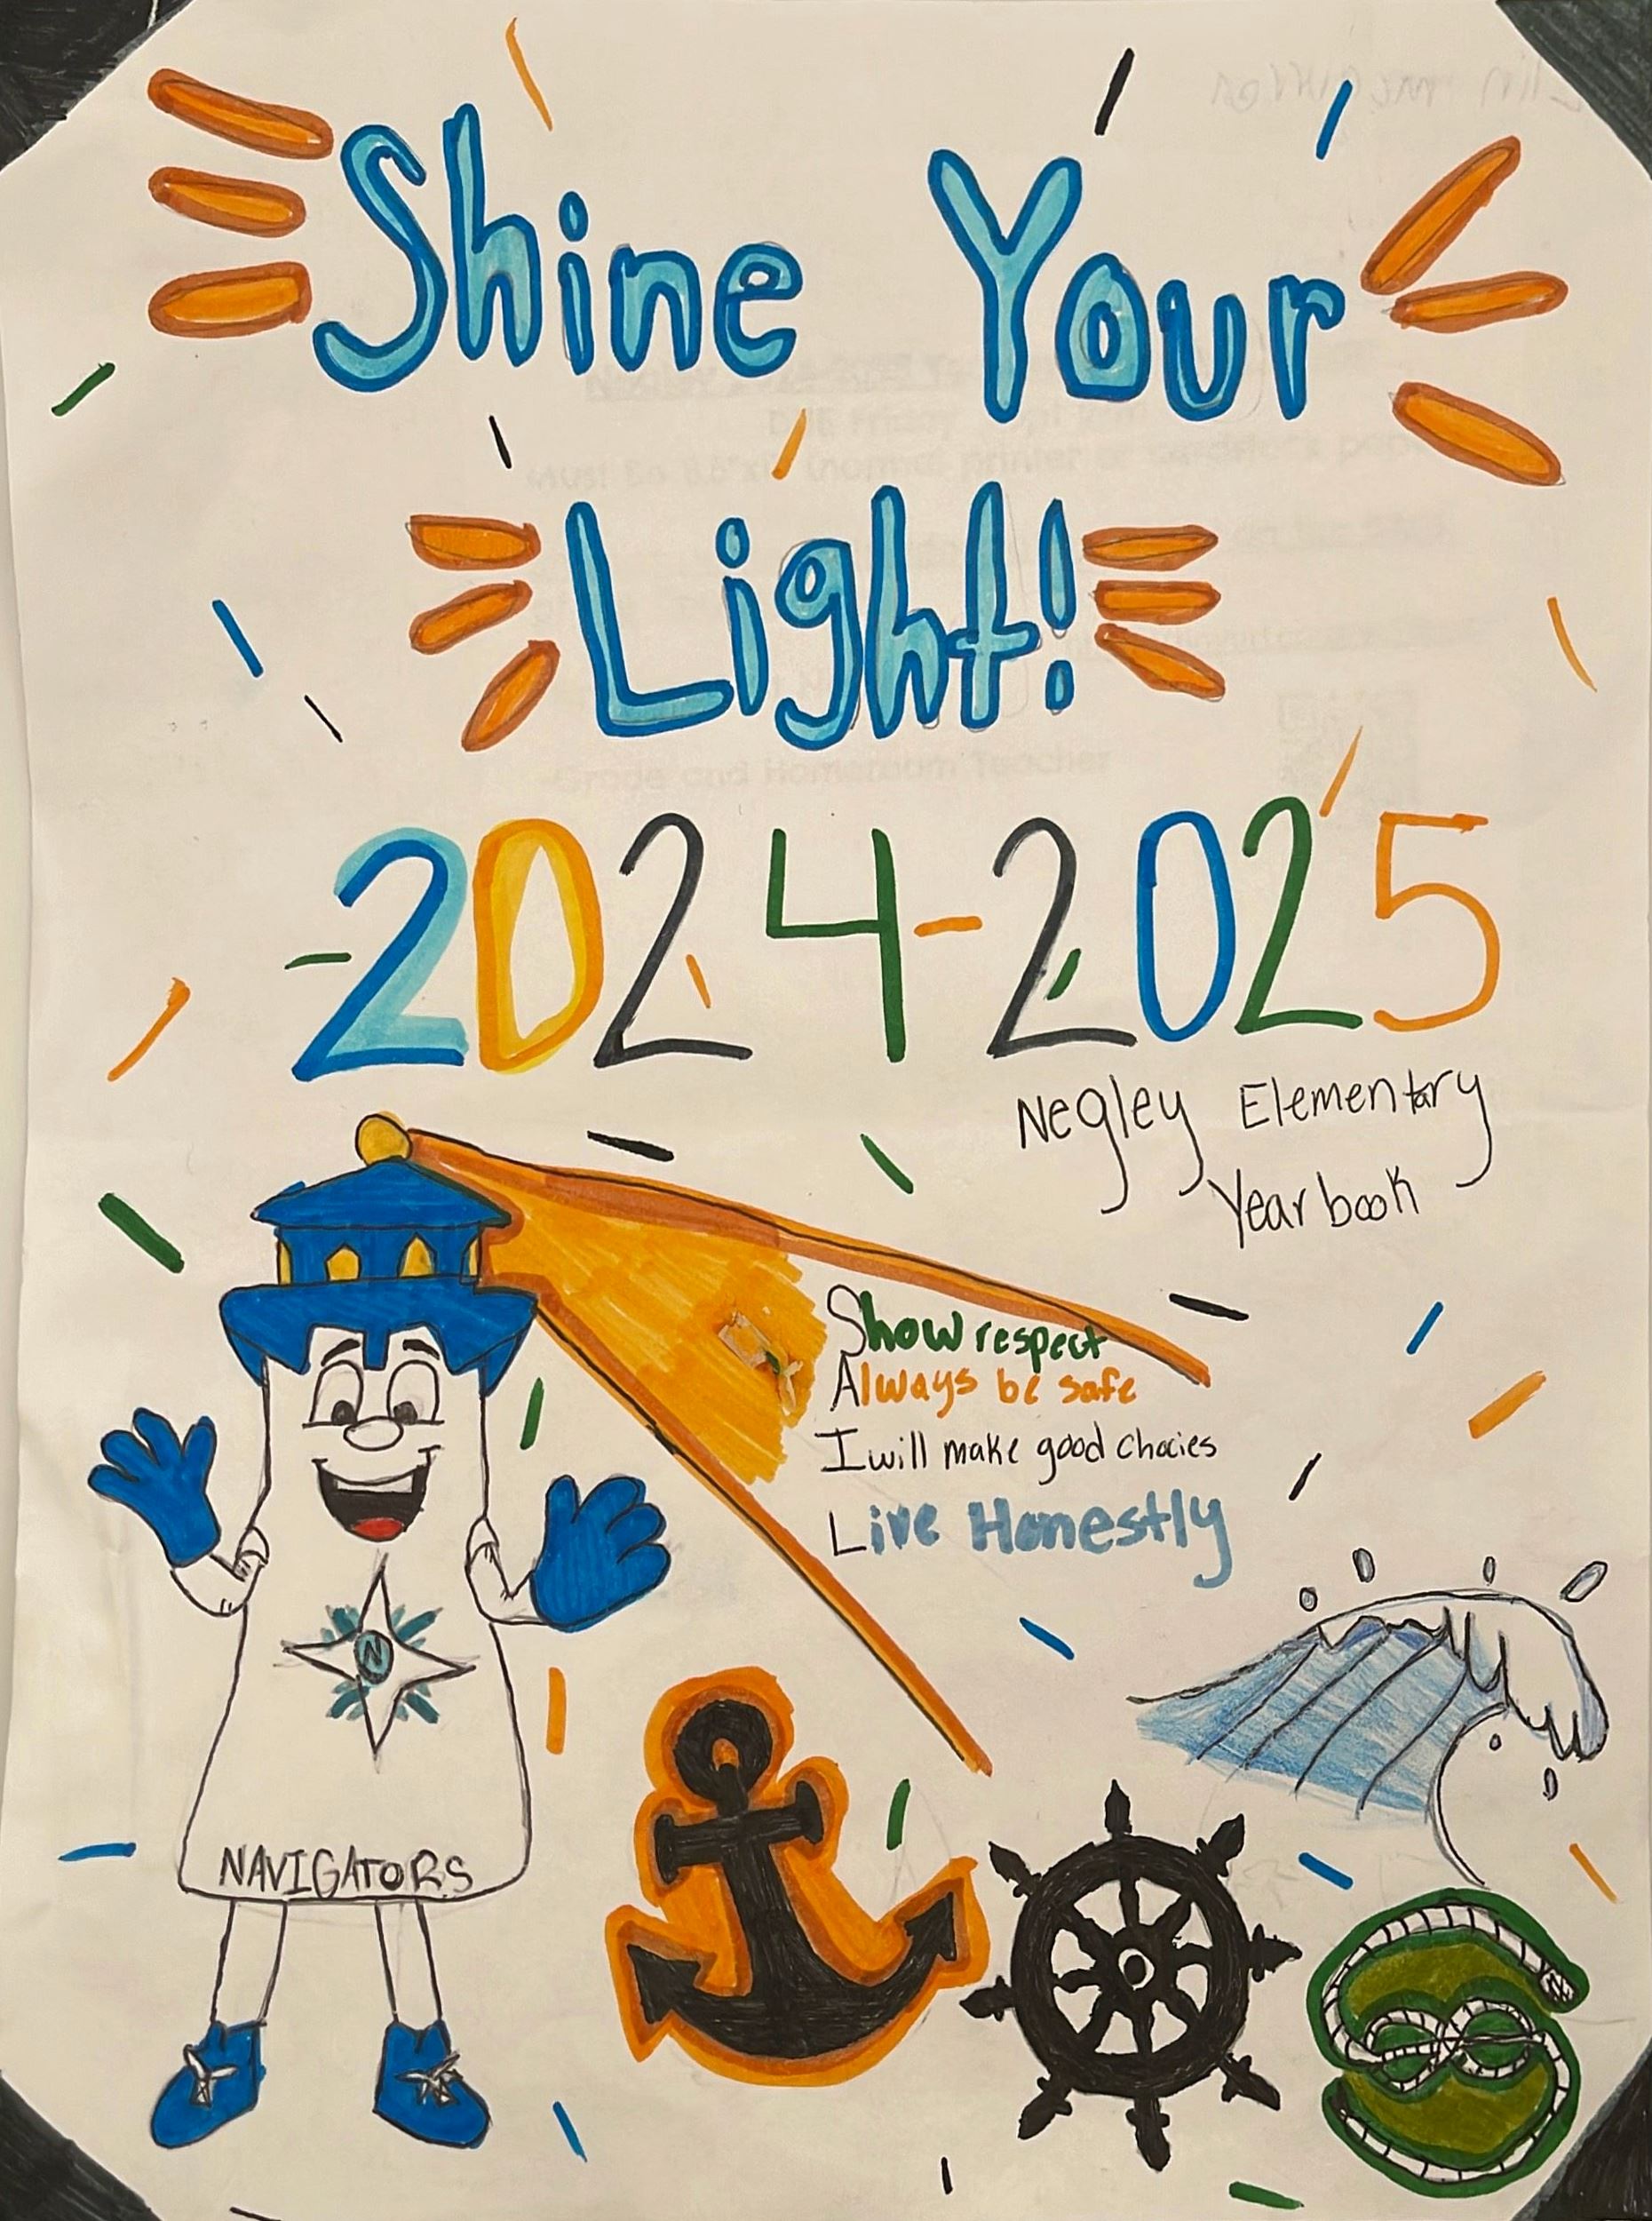 Shine Your
Light!
2024-2025
Negley Elementary
Yearbook
Show respect
Always be safe
I will make good chocies
Live Honestly
N
NAVIGATORS